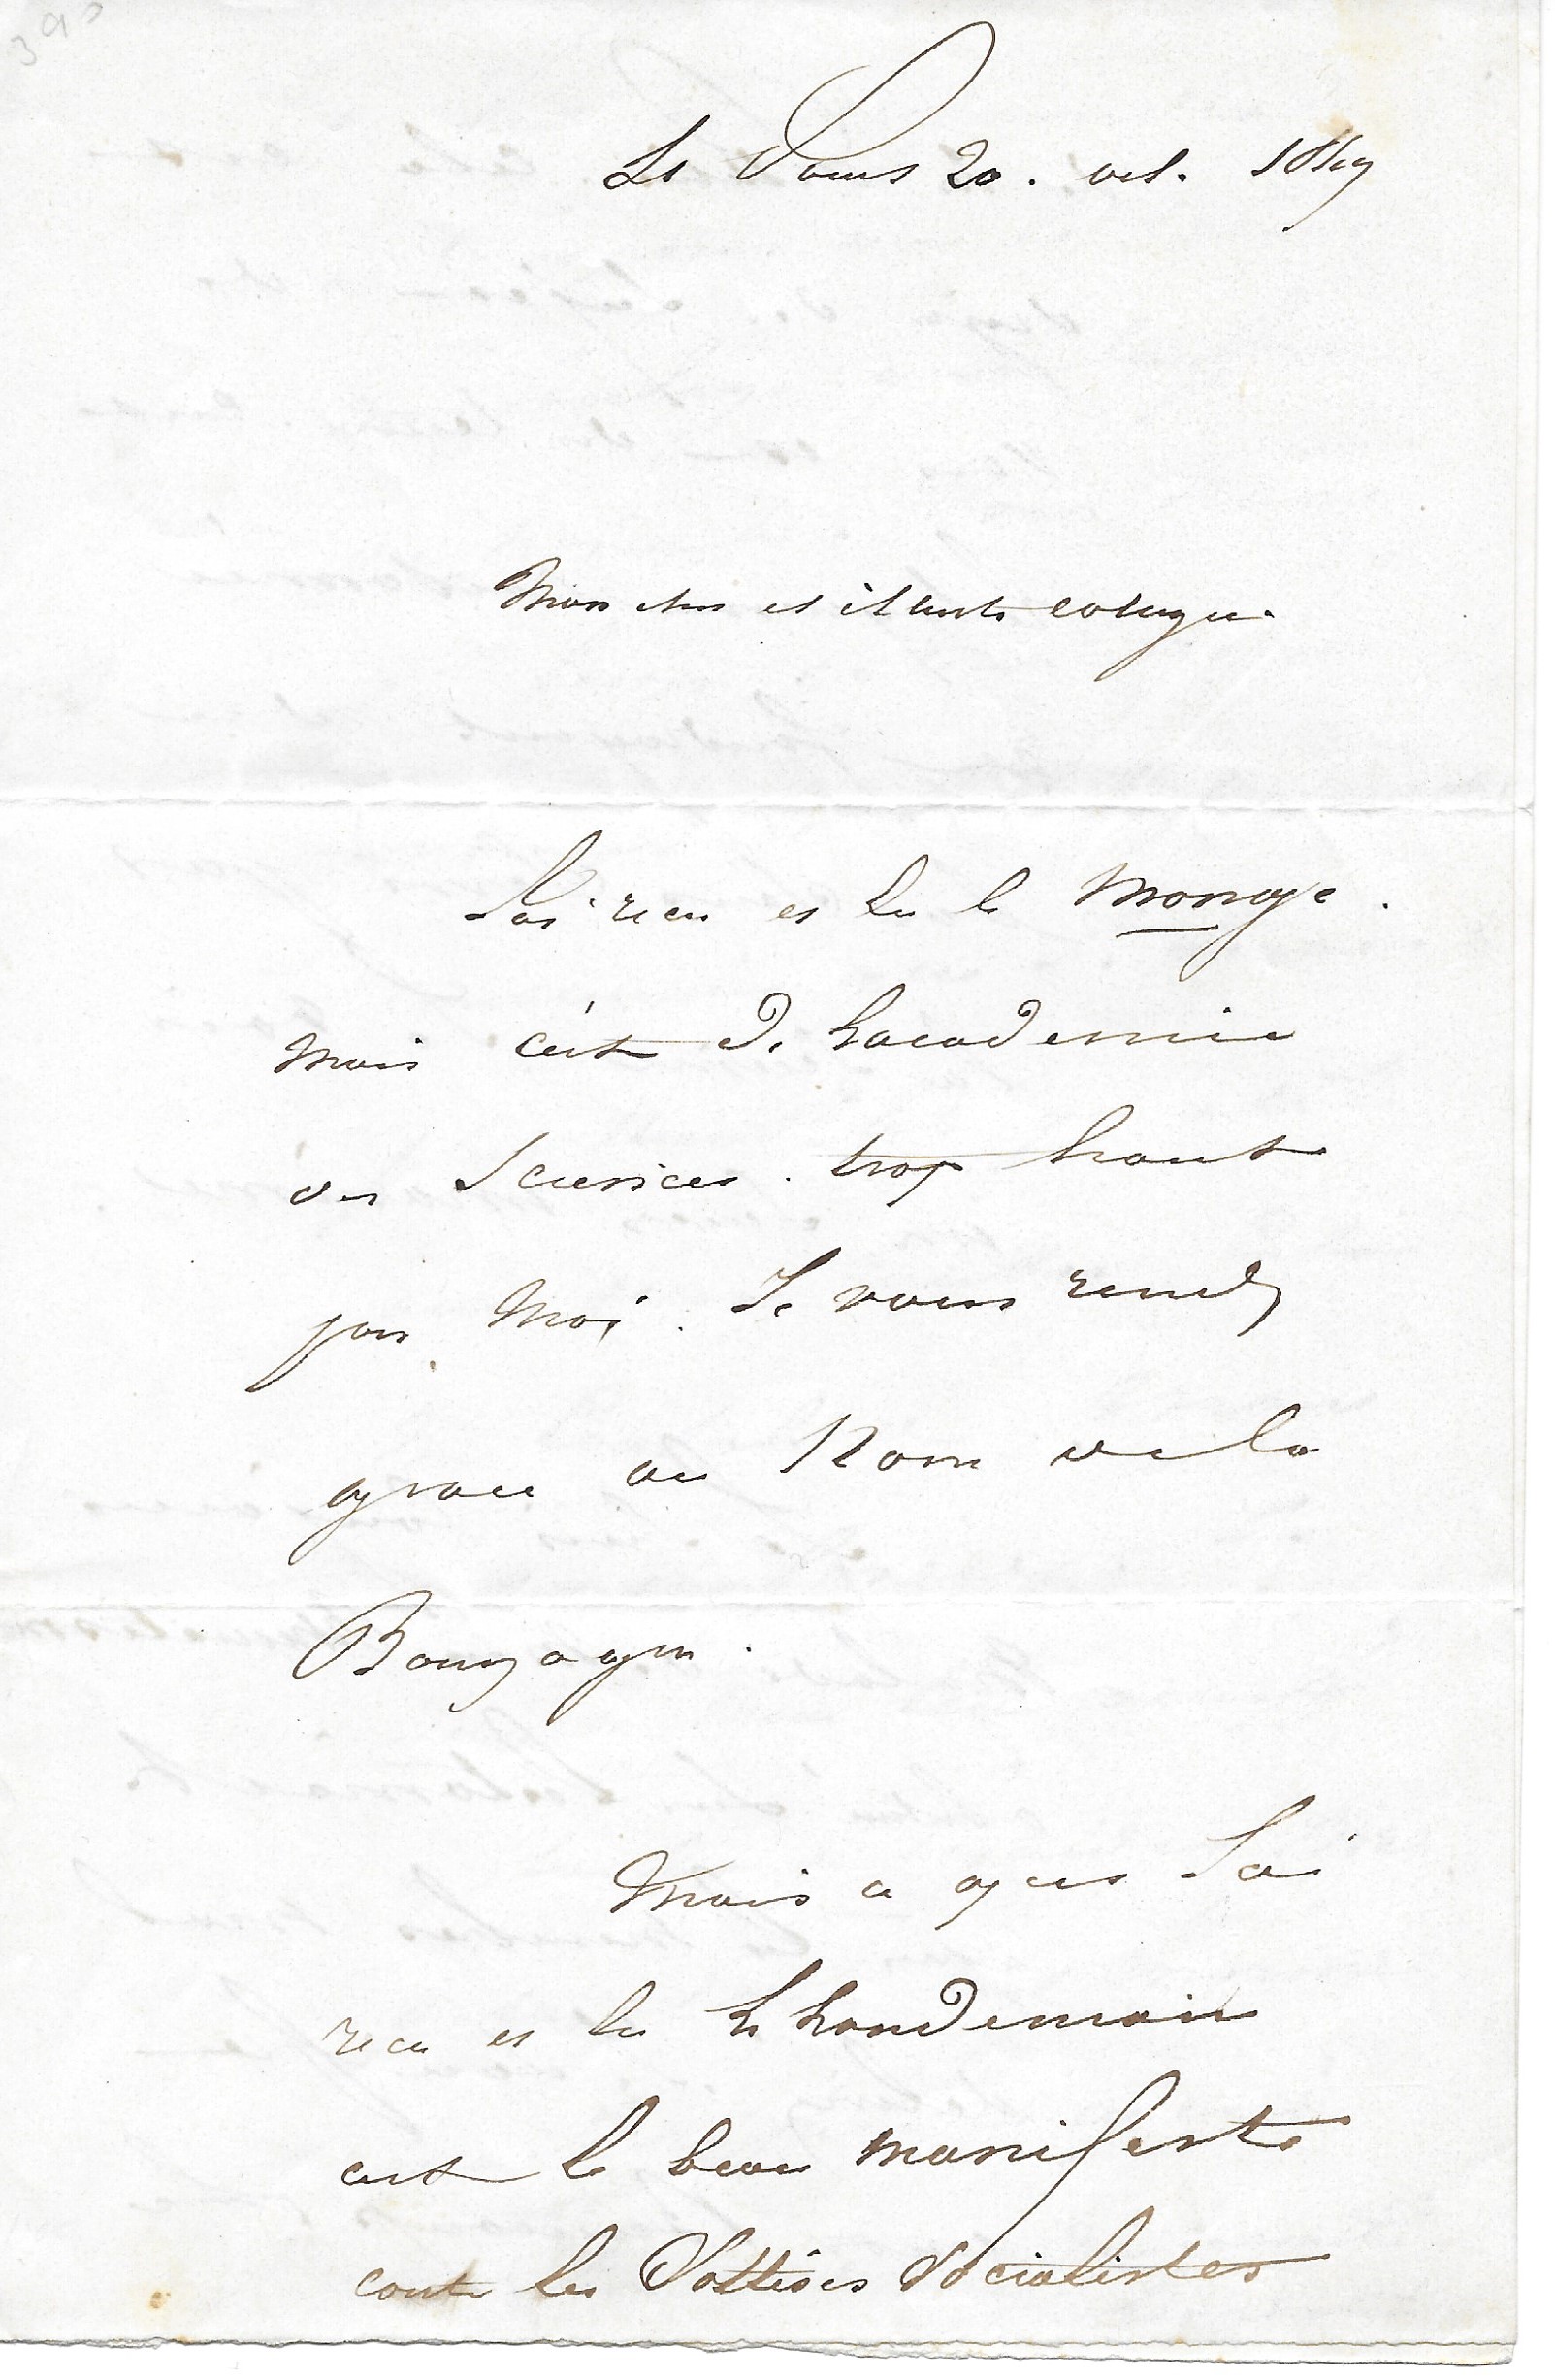 St Point 20. oct. 1849
Mon cher et illustre collegue
J'ai recu et lu le Monge.
Mais c'est de l'academie
des Sciences. trop haut
pour moi. Je vous rends
grace au Nom de la
Bourgogne.
Mais ce que J'ai
recu et lu le lendemain
c'est le beau manifeste
contre les Sottises Socialistes